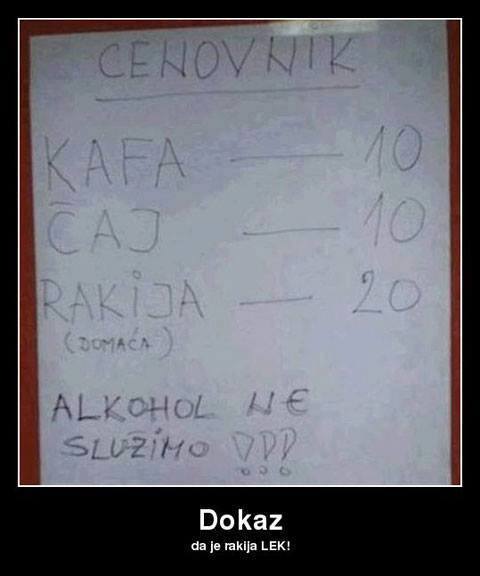 CENOVNIK
KAFA — 10
ČAJ — 10
RAKIJA — 20
(DOMAĆA)
ALKOHOL NE
SLUŽIMO !!!
Dokaz
da je rakija LEK!